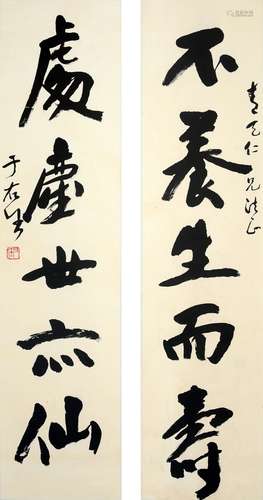 不養生而壽
青天仁兄法正
處塵世亦仙
于右任